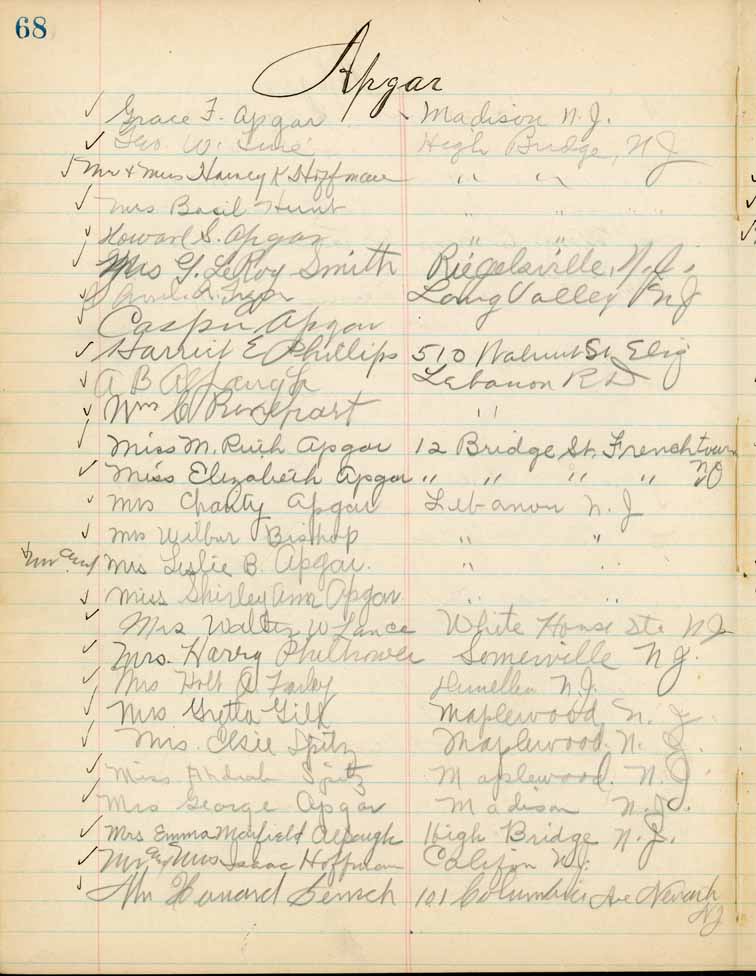 68
Apgar
Grace F. Apgar Madison N.J.
Geo W. High Bridge, NJ
Mr & Mrs Harvey K Hoffman " "
Mrs Basil Hunt " " " "
Howard S. Apgar " "
Mrs G. LeRoy Smith Riegelsville, N.J.
Long Valley NJ
Casper Apgar
Harriet E Phillips 510 Walnut St Eliz
A B Alpaugh Lebanon RD
Wm "
Miss M. Ruth Apgar 12 Bridge St. Frenchtown
Miss Elizabeth Apgar " " " " NJ
Mrs Charity Apgar Lebanon N. J
Mrs Wilbur Bishop " "
Mr and Mrs Leslie B. Apgar. " "
Miss Shirley Ann Apgar " "
Mrs Walter W Lance White House Sta NJ
Mrs. Harry Philhower Somerville NJ.
Mrs Holt Farley Dunellen N.J.
Mrs Gretta Gill Maplewood, N. J
Mrs. Elsie Spitz Maplewood. N. J.
Miss Spitz Maplewood. N. J
Mrs George Apgar Madison N.J.
Mrs Emma Alpaugh High Bridge N.J.
Mr and Mrs Isaac Hoffman Califon N.J.
Mr Howard 101 Columbia Ave Newark
NJ